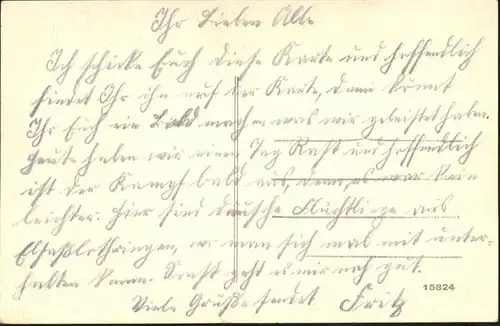 Ihr Lieben Alle
Ich schicke Euch diese Karte und hoffendlich
findet Ihr ihn auf der Karte, dann könnt
Ihr Euch ein Bild machen was wir geleistet haben.
Heute haben wir einen Tag Rast und hoffendlich
ist der Kampf bald aus, denn es war kein
leichter. Hier sind deutsche Flüchtlige aus
Elsaßlothringen, wo man sich mal mit unter-
halten kann. Sonst geht es mir noch gut.
15824
Viele Grüße sendet Fritz